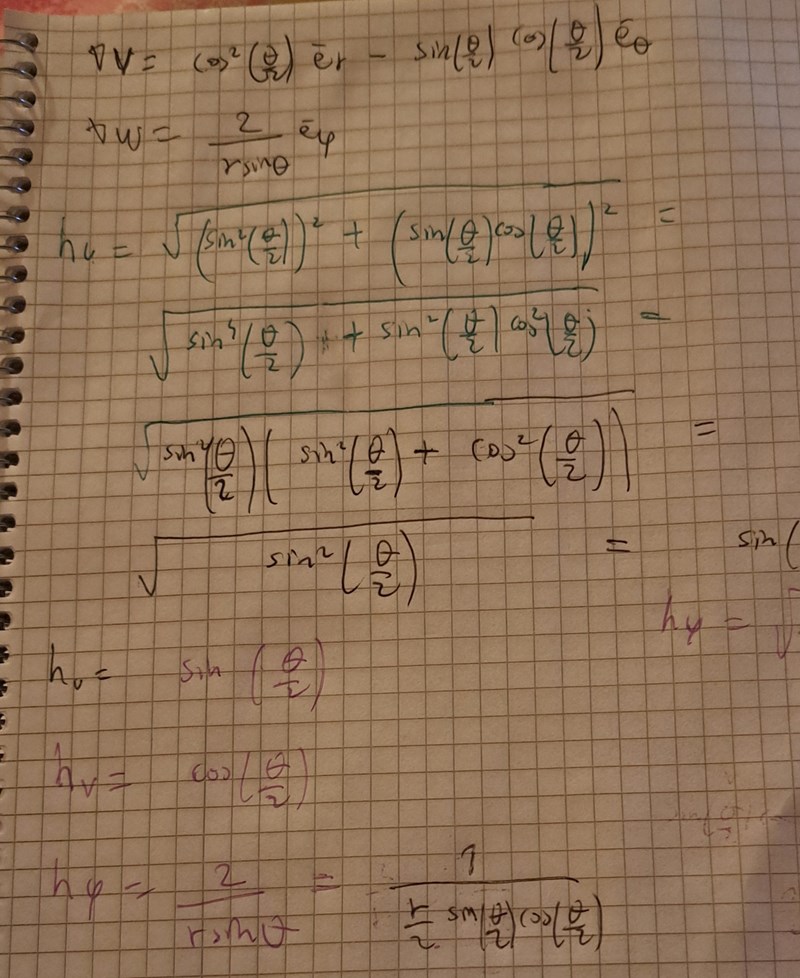 ∇V = cos²(θ/2) ēr − sin(θ/2) cos(θ/2) ēθ
∇W = 2/(r sinθ) ēφ
hᵤ = √((sin²(θ/2))² + (sin(θ/2) cos(θ/2))²) =
√(sin⁴(θ/2) + sin²(θ/2) cos²(θ/2)) =
√(sin²(θ/2)(sin²(θ/2) + cos²(θ/2))) =
√(sin²(θ/2)) = sin(
hφ = √
hᵤ = sin(θ/2)
hᵥ = cos(θ/2)
hφ = 2/(r sinθ) = 1/(r/2 sin(θ/2) cos(θ/2))